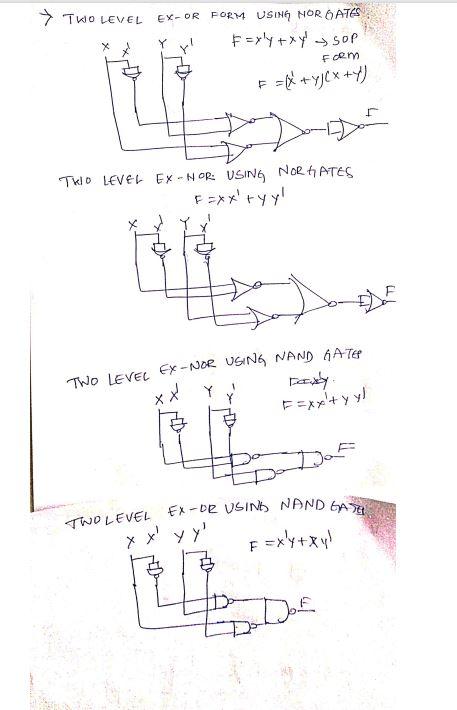 → TWO LEVEL EX-OR FORM USING NOR GATES
X X' Y Y'
F = x'y + xy' → SOP
FORM
F = (x' + y)(x + y')
F
TWO LEVEL EX-NOR USING NOR GATES
F = xx' + yy'
X X' Y Y'
F
TWO LEVEL EX-NOR USING NAND GATES
X X' Y Y'
F = xx' + yy'
F
TWO LEVEL EX-OR USING NAND GATES
X X' Y Y'
F = x'y + xy'
F